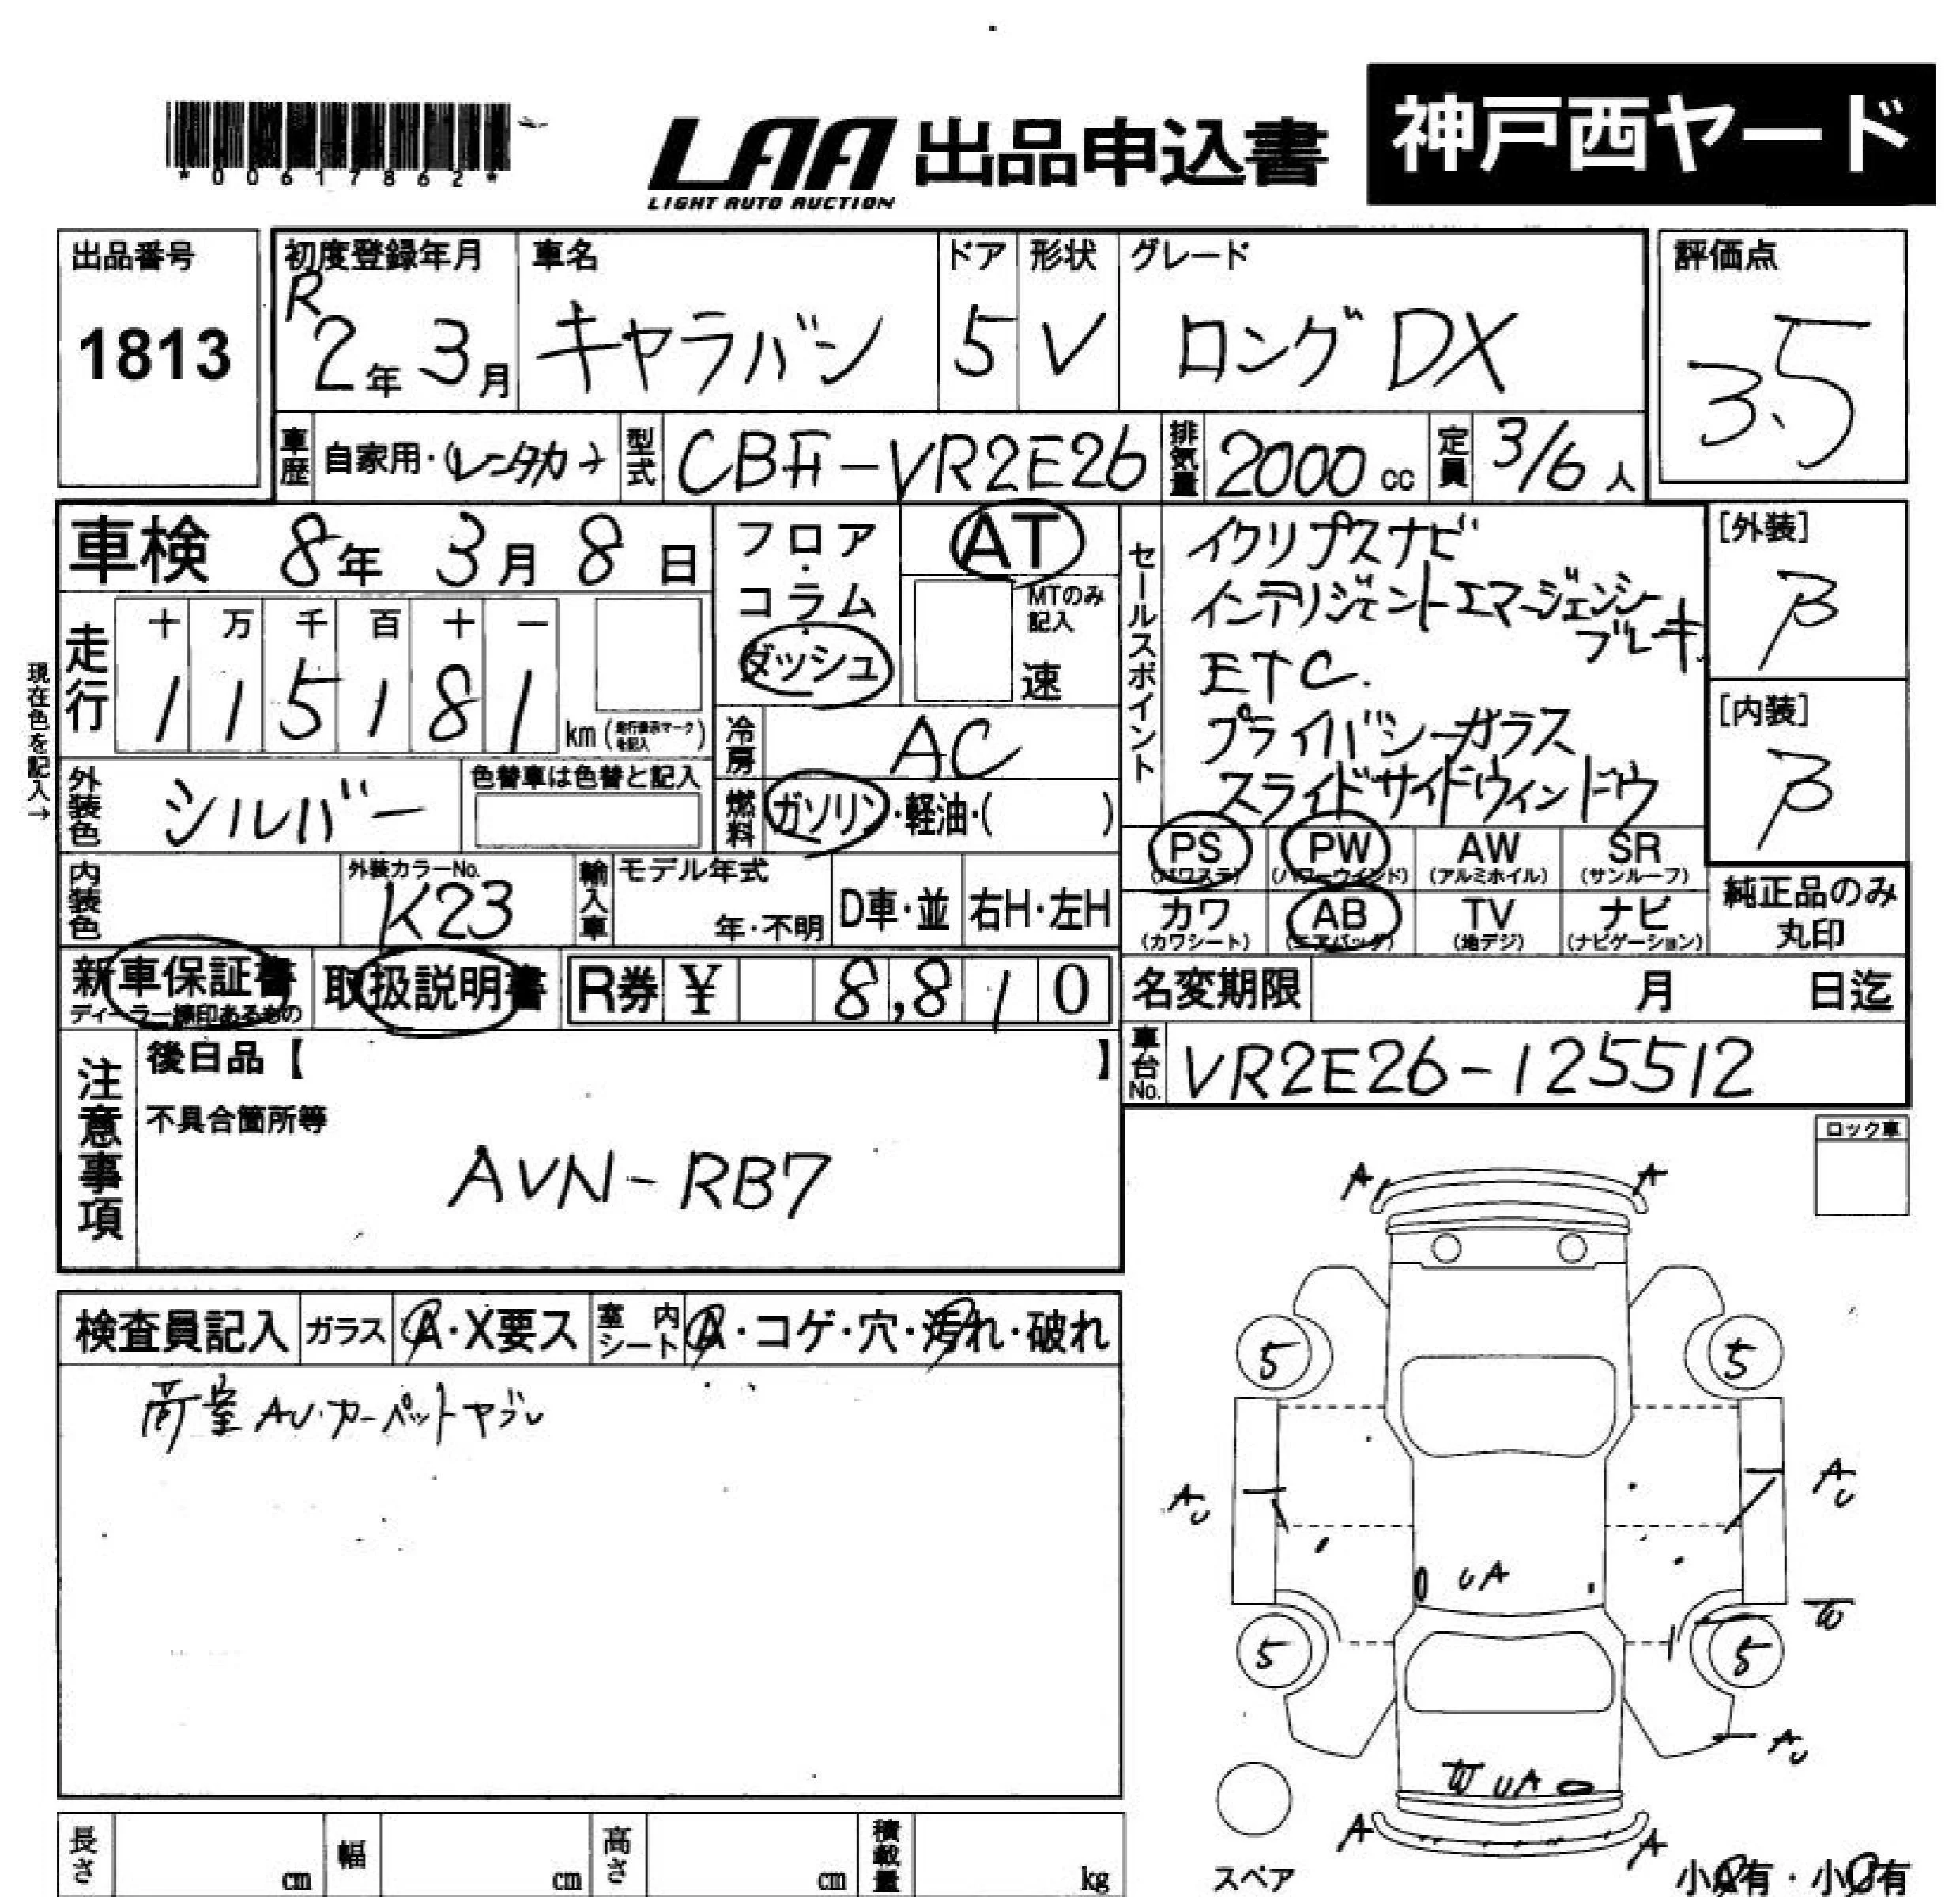 *00617862*
LAA 出品申込書 神戸西ヤード
LIGHT AUTO AUCTION
出品番号 1813
初度登録年月 R2年3月
車名 キャラバン
ドア 5
形状 V
グレード ロング DX
評価点 3.5
車歴 自家用・(レンタカー)
型式 CBF-VR2E26
排気量 2000 cc
定員 3/6 人
車検 8年 3月 8日
フロア・コラム・ダッシュ
AT
MTのみ記入
速
セールスポイント
イクリプスナビ
インテリジェントエマージェンシー
ブレーキ
ETC.
プライバシーガラス
スライドサイドウィンドウ
[外装] β
[内装] β
現在色を記入→
走行
十 万 千 百 十 一
1 1 5 1 8 1 km (走行表示マークを記入)
冷房 AC
外装色 シルバー
色替車は色替と記入
燃料 ガソリン・軽油・( )
PS (パワステ)
PW (パワーウインド)
AW (アルミホイル)
SR (サンルーフ)
カワ (カワシート)
AB (エアバッグ)
TV (地デジ)
ナビ (ナビゲーション)
純正品のみ
丸印
内装色
外装カラーNo. K23
輸入車 モデル年式 年・不明
D車・並
右H・左H
新車保証書
ディーラー捺印あるもの
取扱説明書
R券 ¥ 8,810
名変期限 月 日迄
車台No. VR2E26-125512
注意事項
後日品【 】
不具合箇所等
AVN-RB7
ロック車
検査員記入 ガラス A・X要ス 室内シート A・コゲ・穴・汚れ・破れ
荷室 AU・カーペットヤブレ
A A
5 5
AU AU
UA
W
5 5
AU
W UA
A A
スペア
小A有・小U有
長さ cm
幅 cm
高さ cm
積載量 kg